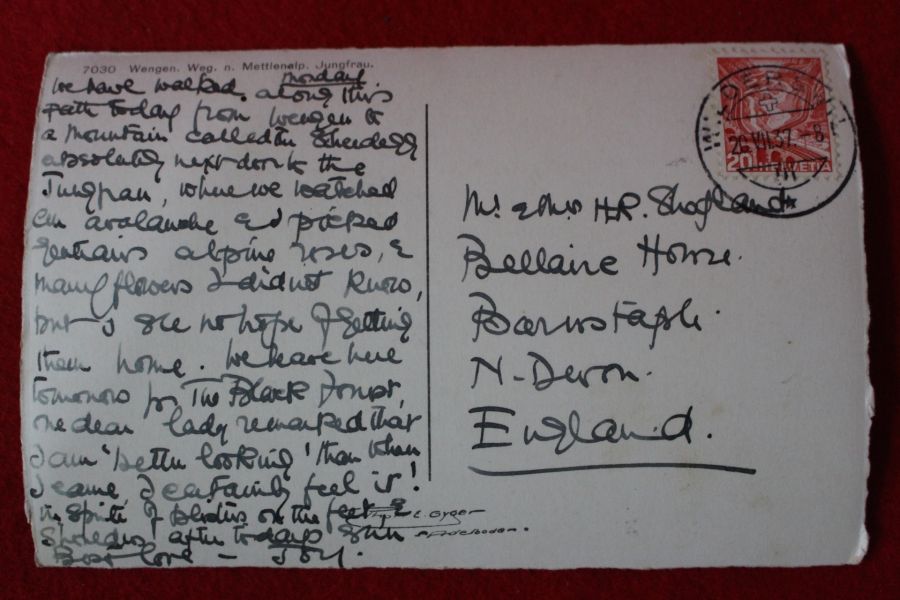 7030 Wengen. Weg. n. Mettlenalp. Jungfrau.
Monday
We have walked along this
path today from Wengen to
a mountain called the Scheidegg
absolutely next door to the
Jungfrau, where we watched
an avalanche & picked
gentians alpine roses, &
many flowers I did not know,
but I see no hope of getting
them home. We leave here
tomorrow for The Black Forest,
one dear lady remarked that
I am 'better looking' than when
I came, I certainly feel it!
In spite of blisters on the feet &
shoulders after todays sun
Best love - Joy.
E. Gyger
Adelboden.
20.VII.37.-8
20 HELVETIA
Mr. & Mrs H.R. Shapland
Bellaire House.
Barnstaple.
N. Devon.
England.